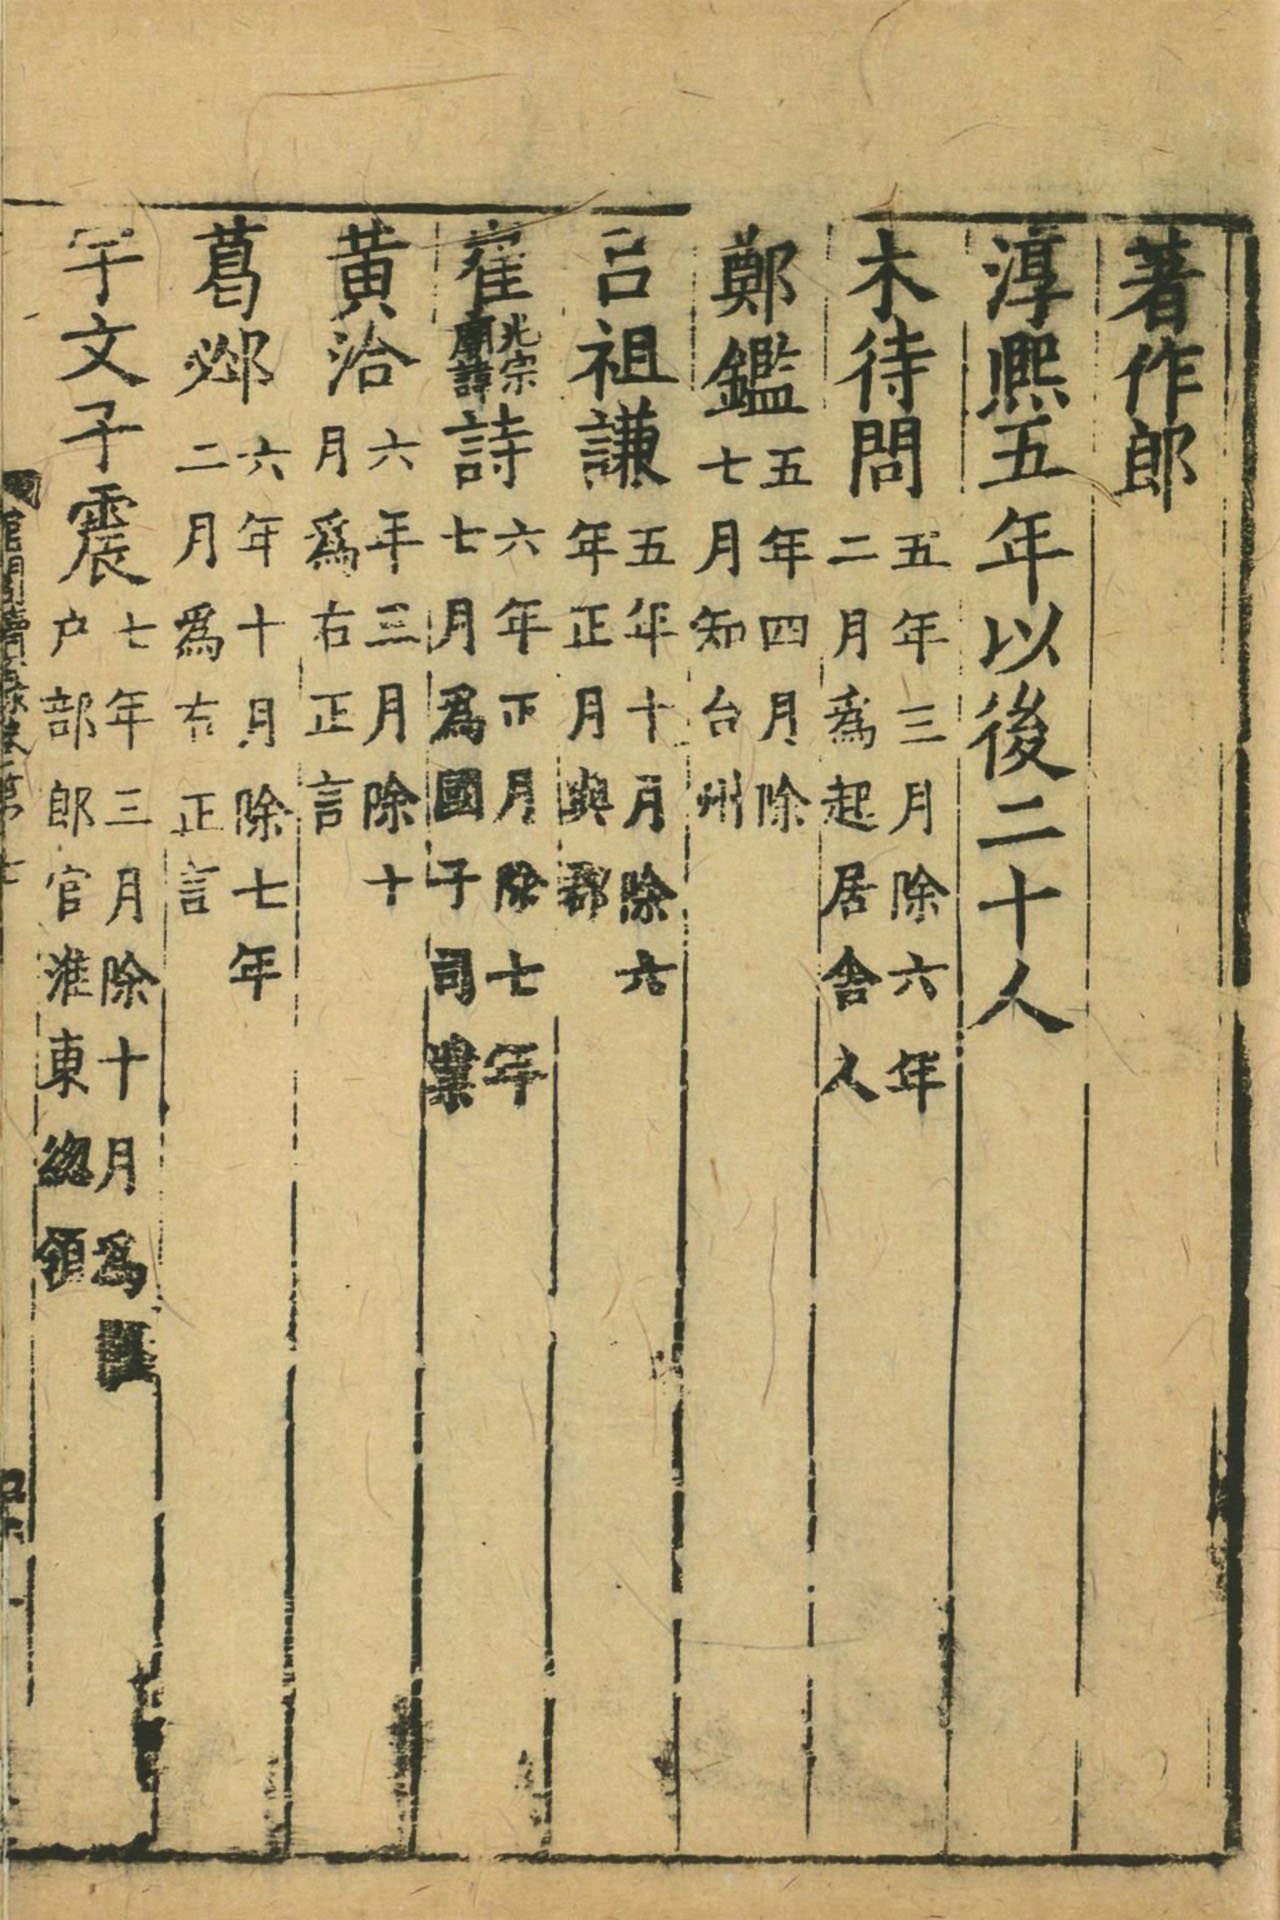 著作郎
淳熙五年以後二十人
木待問五年三月除六年
二月爲起居舍人
鄭鑑五年四月除
七月知台州
吕祖謙五年十月除六
年正月與郡
崔光宗
廟諱詩六年正月除七年
七月爲國子司業
黄洽六年三月除十
月爲右正言
葛邲六年十月除七年
二月爲右正言
宇文子震七年三月除十月爲
户部郎官淮東緫領
館閣續録卷第